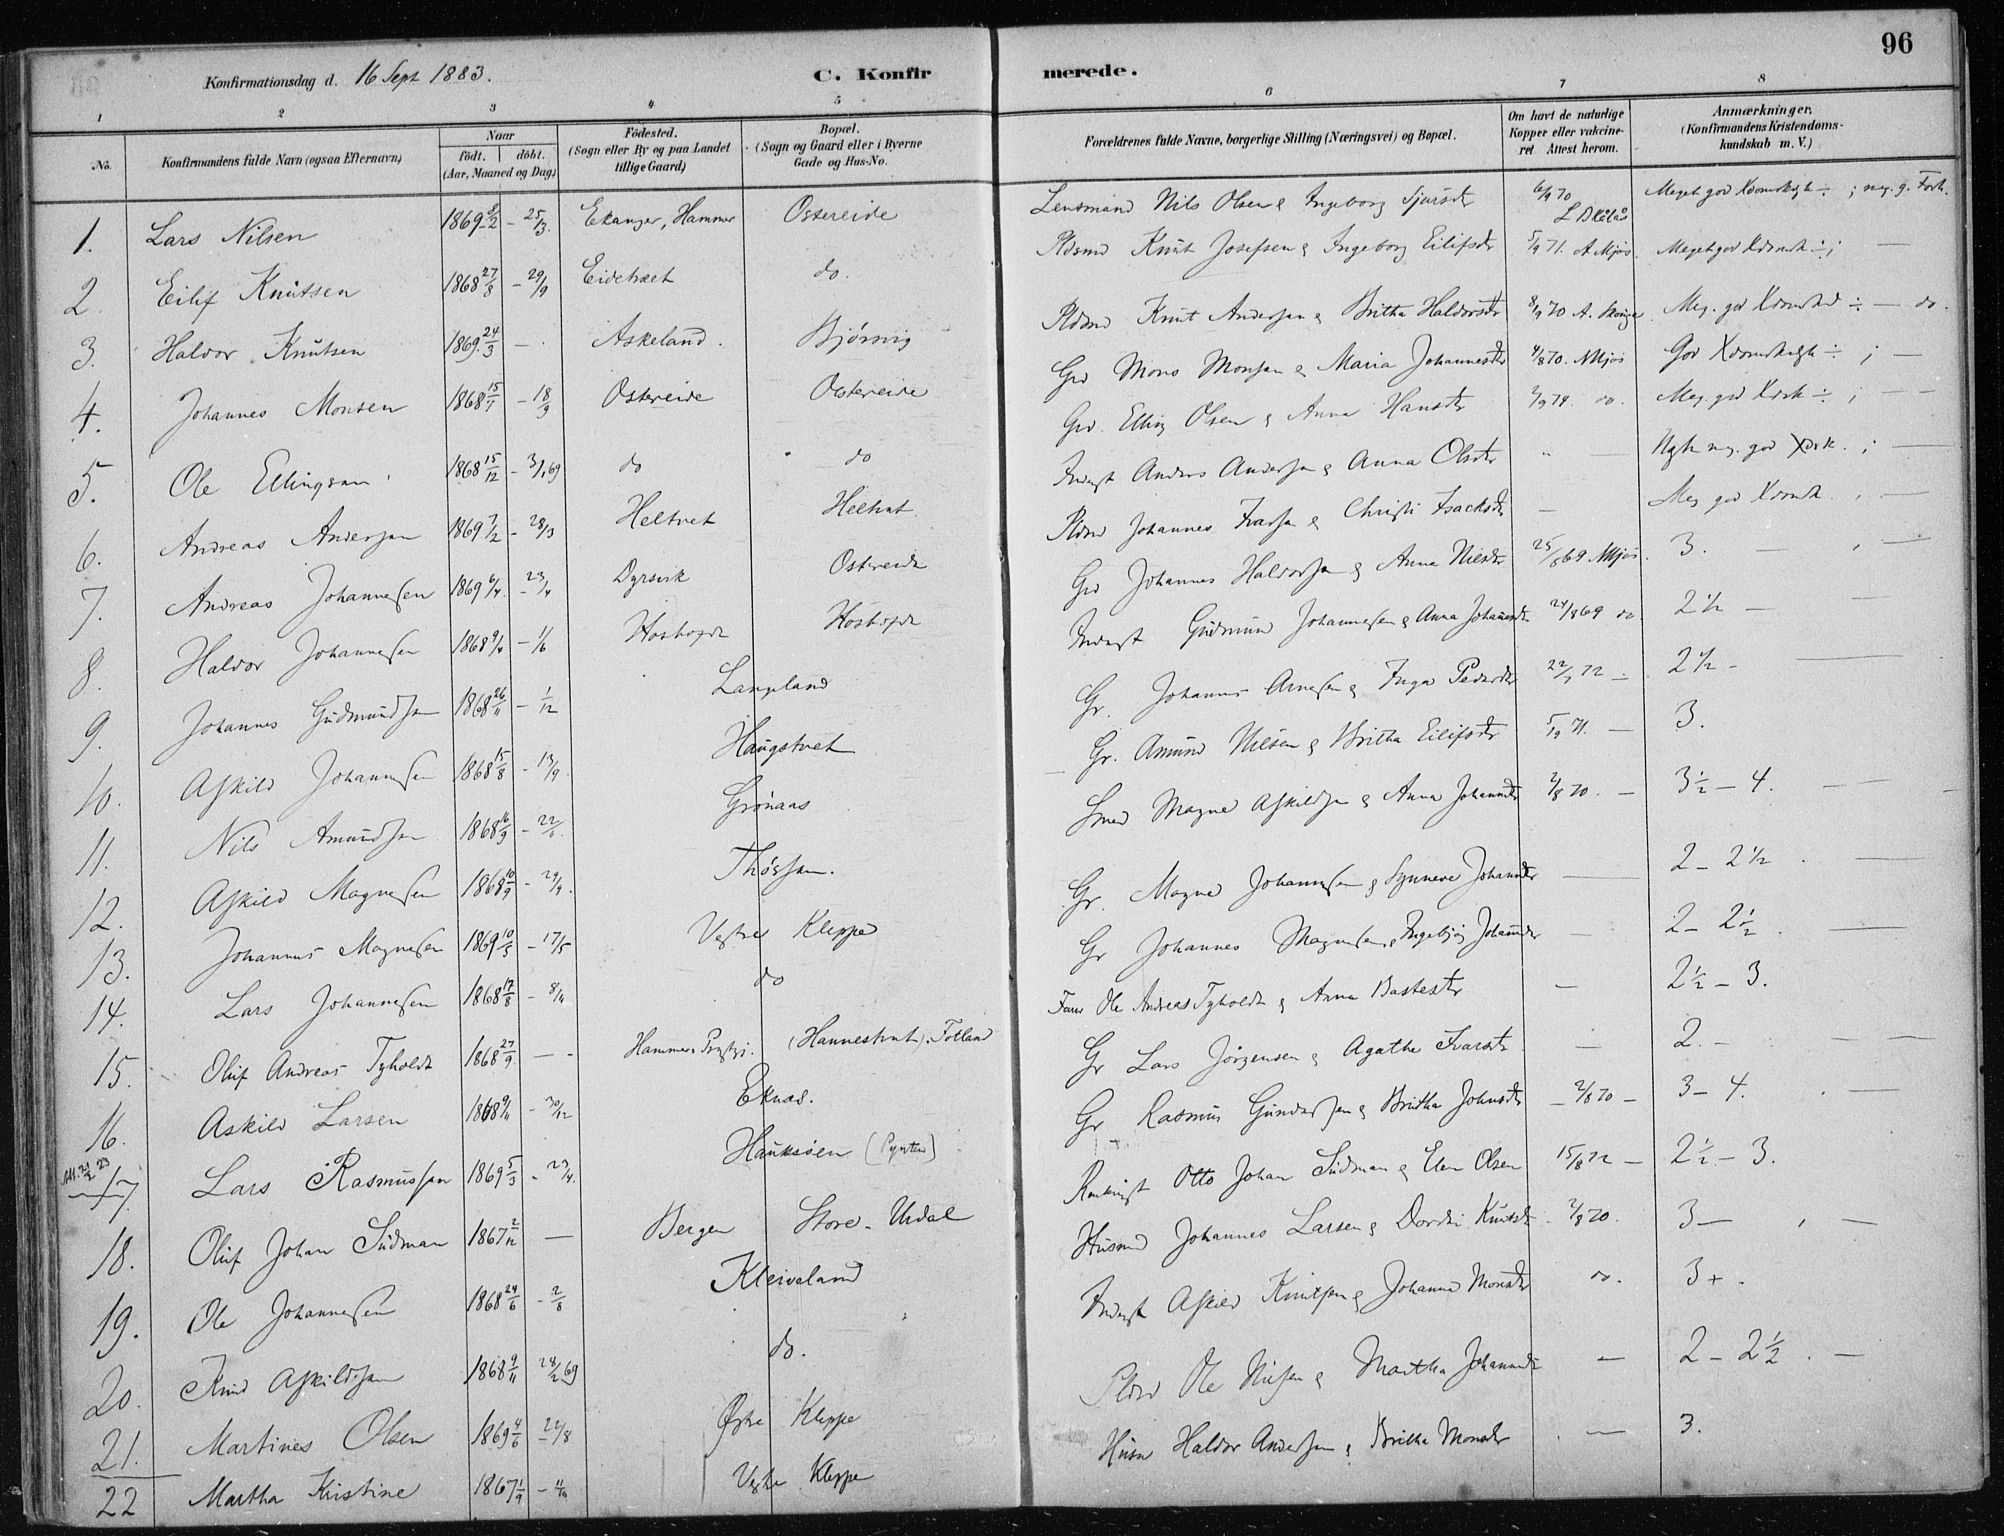 96
Konfirmationsdag d. 16 Sept 1883. C. Konfirmerede.
1 2 3 4 5 6 7 8
No.
Konfirmandens fulde Navn (ogsaa Efternavn)
Naar
födt. döbt.
(Aar, Maaned og Dag)
Födested.
(Sogn eller By og paa Landet
tillige Gaard)
Bopæl.
(Sogn og Gaard eller i Byerne
Gade og Hus-No.
Forældrenes fulde Navne, borgerlige Stilling (Næringsvei) og Bopæl.
Om havt de naturlige
Kopper eller vakcine-
ret Attest herom.
Anmærkninger.
(Konfirmandens Kristendoms-
kundskab m. V.)
1. Lars Nilsen 1869 - 25/3. Ekanger, Hammer Ostereide Lensmand Nils Olsen & Ingeborg Sjursdtr 6/9 70
2. Eilif Knutsen 1868 27/8 - 29/9 Eidetræet do. Pldsmd Knut Josefsen & Ingeborg Eilifsdtr 5/9 71. A Mjøs.
3. Haldor Knutsen 1869. 24/3 - Askeland. Bjørsvig Pldsmd Knut Andersen & Britha Haldorsdtr 8/9 70 do.
4. Johannes Monsen 1868 15/7 - 18/9 Ostereide Ostereide Grd Mons Monsen & Maria Johannesdtr 4/8 70. AMjøs
5. Ole Ellingsen 1868 15/12 - 3/1 69 do do Grd. Elling Olsen & Anna Hansdtr do.
6. Andreas Andersen 1869 7/2 - 28/3 Heltvet Heltvet Inderst Anders Andersen & Anna Olsdtr
7. Andreas Johannesen 1869 6/4 - 23/4 Dyrsvik Ostereide Pldsmd Johannes Ivarsen & Christi Isacksdtr
8. Haldor Johannesen 1868 9/4 - 1/6 Hosteland Grd Johannes Haldorsen & Anna Nilsdtr 25/8 69 AMjøs. 3.
9. Johannes Gudmundsen 1868 26/11 - 1/12 Langeland Inderst Gudmund Johannesen & Anna Johannesdtr 24/8 69 do 2 1/2 -
10. Askild Johannesen 1868 15/8 - 13/9 Haugstvet Gr. Johannes Arnesen & Inga Pedersdtr 22/7 72 - 2 1/2 -
11. Nils Amundsen 1868 16/9 - Grønaas Gr. Amund Nilsen & Britha Eilifsdtr 5/9 71. - 3.
12. Askild Magnesen 1868 10/9 - 29/9. Thössen. Smed Magne Askildsen & Anna Johannesdtr 2/8 70. - 3 1/2 - 4.
13. Johannes Magnesen 1869 10/5 - 17/5 Vestre Kleppe Gr. Magne Johannesen & Synneve Johannesdtr 2 - 2 1/2
14. Lars Johannesen 1868 17/8 - do Gr Johannes Magnesen & Ingebjør Johannesdtr 2 - 2 1/2
15. Oluf Andreas Tyholdt 1868 27/9. - - Hammers Prgjd. (Hannestvet). Fotland Ole Andreas Tyholdt & Anna Bastesdtr - 2 1/2 - 3.
16. Askild Larsen 1868 9/11 - 30/12 Eknæs. Gr Lars Jörgensen & Agathe Ivarsdtr - 2. -
17. Lars Rasmussen 1869 5/3 - 23/4. Hauksøen (Pynten) Gr Rasmus Gundersen & Britha Johnsdtr - 2/8 70 - 3 - 4.
18. Oluf Johan Sudman 1867 2/12 - Bergen Store-Urdal Otto Johan Sudman & Elen Olsen 15/8 72 - 2 1/2 - 3.
19. Ole Johannesen 1868 24/6 - 2/8 Kleiveland Husmd Johannes Larsen & Dordei Knutsdtr - 2/8 70. 3 -
20. Knud Askildsen 1868 9/11 28/2 69 do. Inderst Askild Knutsen & Johanna Monsdtr do. 3+.
21. Martines Olsen 1869 4/6 - 22/8 Østre Kleppe Pldsmd Ole Nilsen & Martha Johannesdtr - 2 - 2 1/2
22 Martha Kristine 1867 1/9 - Vestre Kleppe Husm Haldor Andersen & Britha Monsdtr - 3.